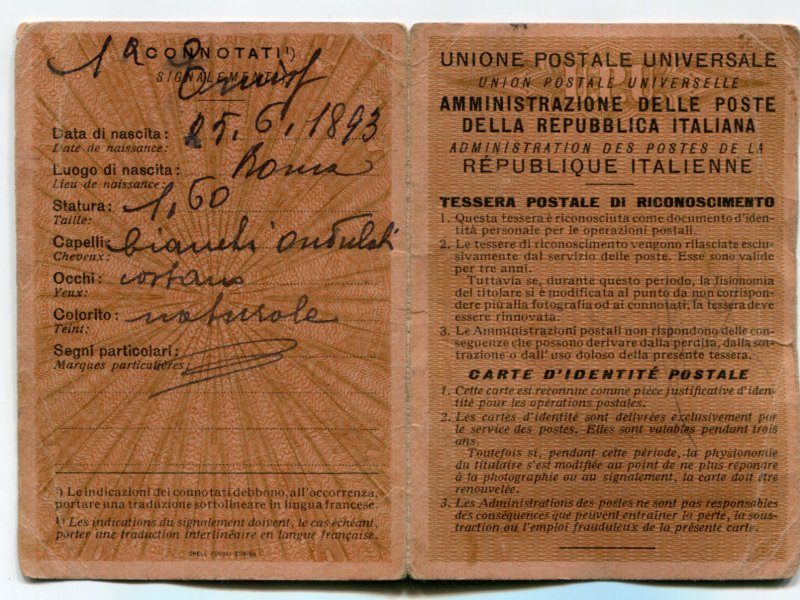 CONNOTATI ¹)
SIGNALEMENT ¹)
Data di nascita: 25.6.1893
Date de naissance:
Luogo di nascita: Roma
Lieu de naissance:
Statura: 1,60
Taille:
Capelli: bianchi ondulati
Cheveux:
Occhi: castano
Yeux:
Colorito: naturale
Teint:
Segni particolari:
Marques particulières:
¹) Le indicazioni dei connotati debbono, all'occorrenza,
portare una traduzione sottolineare in lingua francese.
¹) Les indications du signalement doivent, le cas échéant,
porter une traduction interlinéaire en langue française.
ORELL FÜSSLI ZÜRICH
UNIONE POSTALE UNIVERSALE
UNION POSTALE UNIVERSELLE
AMMINISTRAZIONE DELLE POSTE
DELLA REPUBBLICA ITALIANA
ADMINISTRATION DES POSTES DE LA
RÉPUBLIQUE ITALIENNE
TESSERA POSTALE DI RICONOSCIMENTO
1. Questa tessera è riconosciuta come documento d'iden-
tità personale per le operazioni postali.
2. Le tessere di riconoscimento vengono rilasciate esclu-
sivamente dal servizio delle poste. Esse sono valide
per tre anni.
Tuttavia se, durante questo periodo, la fisionomia
del titolare si è modificata al punto da non corrispon-
dere più alla fotografia od ai connotati, la tessera deve
essere rinnovata.
3. Le Amministrazioni postali non rispondono delle con-
seguenze che possono derivare dalla perdita, dalla sot-
trazione o dall'uso doloso della presente tessera.
CARTE D'IDENTITÉ POSTALE
1. Cette carte est reconnue comme pièce justificative d'iden-
tité pour les opérations postales.
2. Les cartes d'identité sont délivrées exclusivement par
le service des postes. Elles sont valables pendant trois
ans.
Toutefois si, pendant cette période, la physionomie
du titulaire s'est modifiée au point de ne plus répondre
à la photographie ou au signalement, la carte doit être
renouvelée.
3. Les Administrations des postes ne sont pas responsables
des conséquences que peuvent entraîner la perte, la sous-
traction ou l'emploi frauduleux de la présente carte.